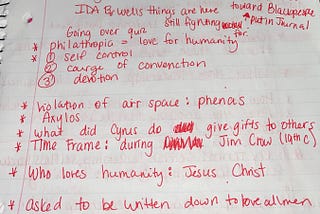 IDA B wells things are here toward Blackpeople
still fighting for. ↑ Put in Journal
Going over quiz
* philathropia = love for humanity
* ① self control
② courge of convenction
③ devotion
* violation of air space: phenas
* Axylos
* what did Cyrus do give gifts to others
* Time Frame: during Jim Crow (19th c)
* Who loves humanity: Jesus Christ
* asked to be written down to love all men